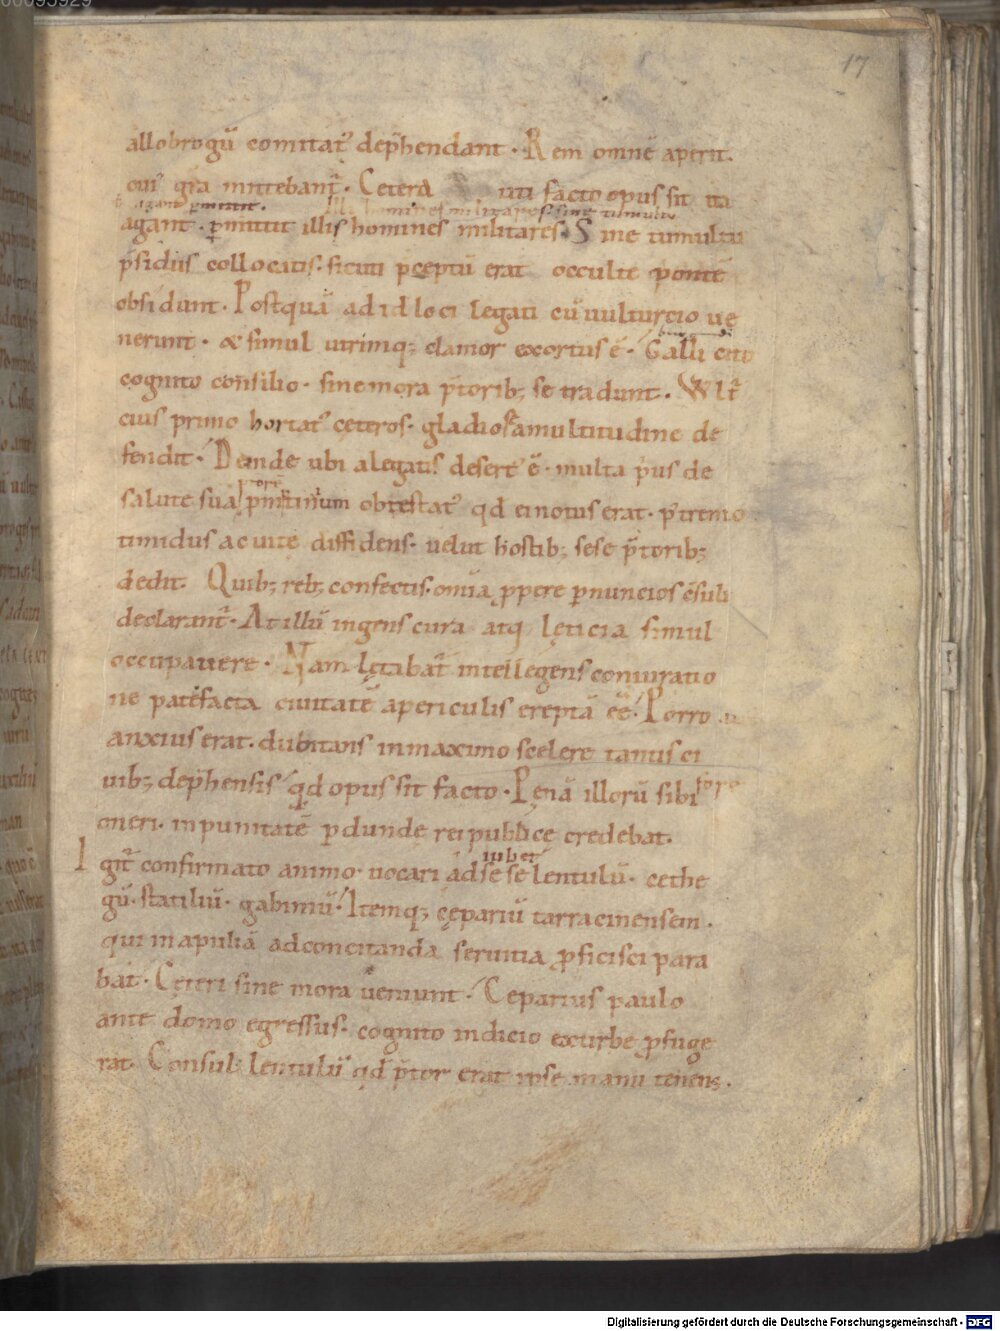 00095929
17
allobrogū comitat᾿ dep̄hendant · Rem omnē aperit.
cui᾿ gr̄a mittebant᾿ · Cetera uti facto opus sit ita
agant · p̄mittit illis homines militares · Sine tumultu
p̄sidiis collocatis · sicuti p̄ceptū erat occulte pontē
obsidunt · Postquā ad id loci legati cū uulturcio ue
nerunt · & simul utrimq; clamor exortus ē · Galli cito
cognito consilio · sine mora p̄torib; se tradunt · Wlt᾿
cius primo hortat᾿ ceteros · gladio se a multitudine de
fendit · Deinde ubi a legatis desert᾿ ē · multa p̄us de
salute sua obtestat᾿ qd ei notus erat · p᾿tremo
timidus ac uite diffidens · uelut hostib; sese p̄torib;
dedit. Quib; reb; confectis · omīa ꝓpere p̱ nuncios c̄suli
declarant᾿ · At illū ingens cura atq; lęticia simul
occupauere · Nam lętabat᾿ intellegens coniuratio
ne patefacta ciuitatē a periculis ereptā eē · Porro
anxius erat · dubitans in maximo scelere tantis ci
uib; dep̄hensis qd opus sit facto · Penā illorū sibi fore
oneri · inpunitatē p̱dunde rei publice credebat.
iubet
Igit᾿ confirmato animo · uocari ad se se lentulū · cethe
gū · statiliū · gabiniū · Itemq; cępariū tarracinensem ·
qui in apuliā ad concitanda seruitia ꝓficisci para
bat · Ceteri sine mora ueniunt · Ceparius paulo
ante domo egressus · cognito indicio ex urbe ꝓfuge
rat. Consul lentulū qd p̄tor erat ipse manu tenens ·
Digitalisierung gefördert durch die Deutsche Forschungsgemeinschaft - DFG